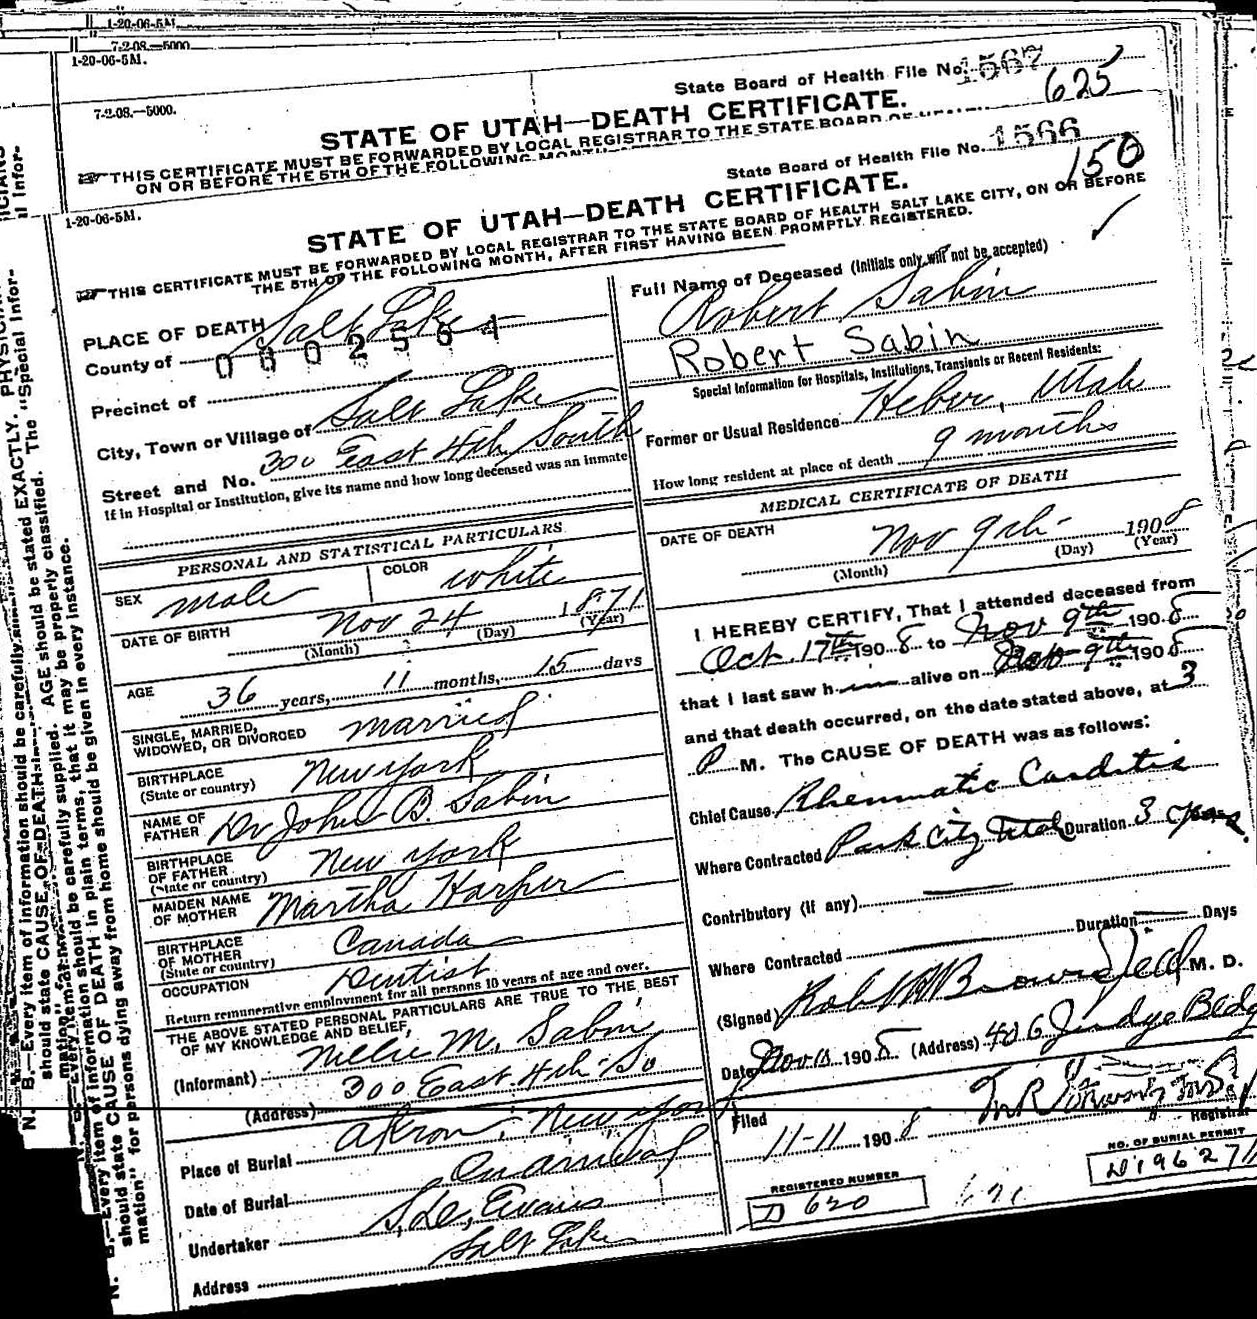 1-20-06-5M.
7-2-08.—5000
1-20-06-5M.
7-2-08.—5000.
State Board of Health File No. 1567
625
STATE OF UTAH—DEATH CERTIFICATE.
THIS CERTIFICATE MUST BE FORWARDED BY LOCAL REGISTRAR TO THE STATE BOARD OF
ON OR BEFORE THE 5TH OF THE FOLLOWING MONTH
1-20-06-5M.
State Board of Health File No. 1566
150
STATE OF UTAH—DEATH CERTIFICATE.
THIS CERTIFICATE MUST BE FORWARDED BY LOCAL REGISTRAR TO THE STATE BOARD OF HEALTH SALT LAKE CITY, ON OR BEFORE
THE 5TH OF THE FOLLOWING MONTH, AFTER FIRST HAVING BEEN PROMPTLY REGISTERED.
PLACE OF DEATH
County of Salt Lake
0802564
Precinct of
City, Town or Village of Salt Lake
Street and No. 300 East 4th South
If in Hospital or Institution, give its name and how long deceased was an inmate
PERSONAL AND STATISTICAL PARTICULARS
SEX male COLOR white
DATE OF BIRTH Nov 24 1871
(Month) (Day) (Year)
AGE 36 years, 11 months, 15 days
SINGLE, MARRIED,
WIDOWED, OR DIVORCED married
BIRTHPLACE
(State or country) New York
NAME OF
FATHER Dr John B. Sabin
BIRTHPLACE
OF FATHER
(State or country) New York
MAIDEN NAME
OF MOTHER Martha Harper
BIRTHPLACE
OF MOTHER
(State or country) Canada
OCCUPATION Dentist
Return remunerative employment for all persons 10 years of age and over.
THE ABOVE STATED PERSONAL PARTICULARS ARE TRUE TO THE BEST
OF MY KNOWLEDGE AND BELIEF,
(Informant) Nellie M. Sabin
(Address) 300 East 4th So
Place of Burial Akron, New York
Date of Burial On arrival
Undertaker S. D. Evans
Address Salt Lake
Full Name of Deceased (Initials only will not be accepted)
Robert Sabin
Robert Sabin
Special Information for Hospitals, Institutions, Transients or Recent Residents:
Former or Usual Residence Heber, Utah
How long resident at place of death 9 months
MEDICAL CERTIFICATE OF DEATH
DATE OF DEATH Nov 9th 1908
(Month) (Day) (Year)
I HEREBY CERTIFY, That I attended deceased from
Oct. 17th 1908 to Nov 9th 1908
that I last saw him alive on Nov 9th 1908
and that death occurred, on the date stated above, at 3
P M. The CAUSE OF DEATH was as follows:
Chief Cause Rheumatic Carditis
Where Contracted Park City Utah Duration 3 years
Contributory (if any)
Duration Days
Where Contracted
(Signed) M. D.
Date Nov 1908 (Address) 406 Judge Bldg
Filed 11-11 1908
Registrar
REGISTERED NUMBER
D 620
NO. OF BURIAL PERMIT
D 19627
N. B.—Every item of information should be carefully supplied. AGE should be stated EXACTLY. PHYSICIANS
should state CAUSE OF DEATH in plain terms, that it may be properly classified. The "Special Infor-
mation" for persons dying away from home should be given in every instance.